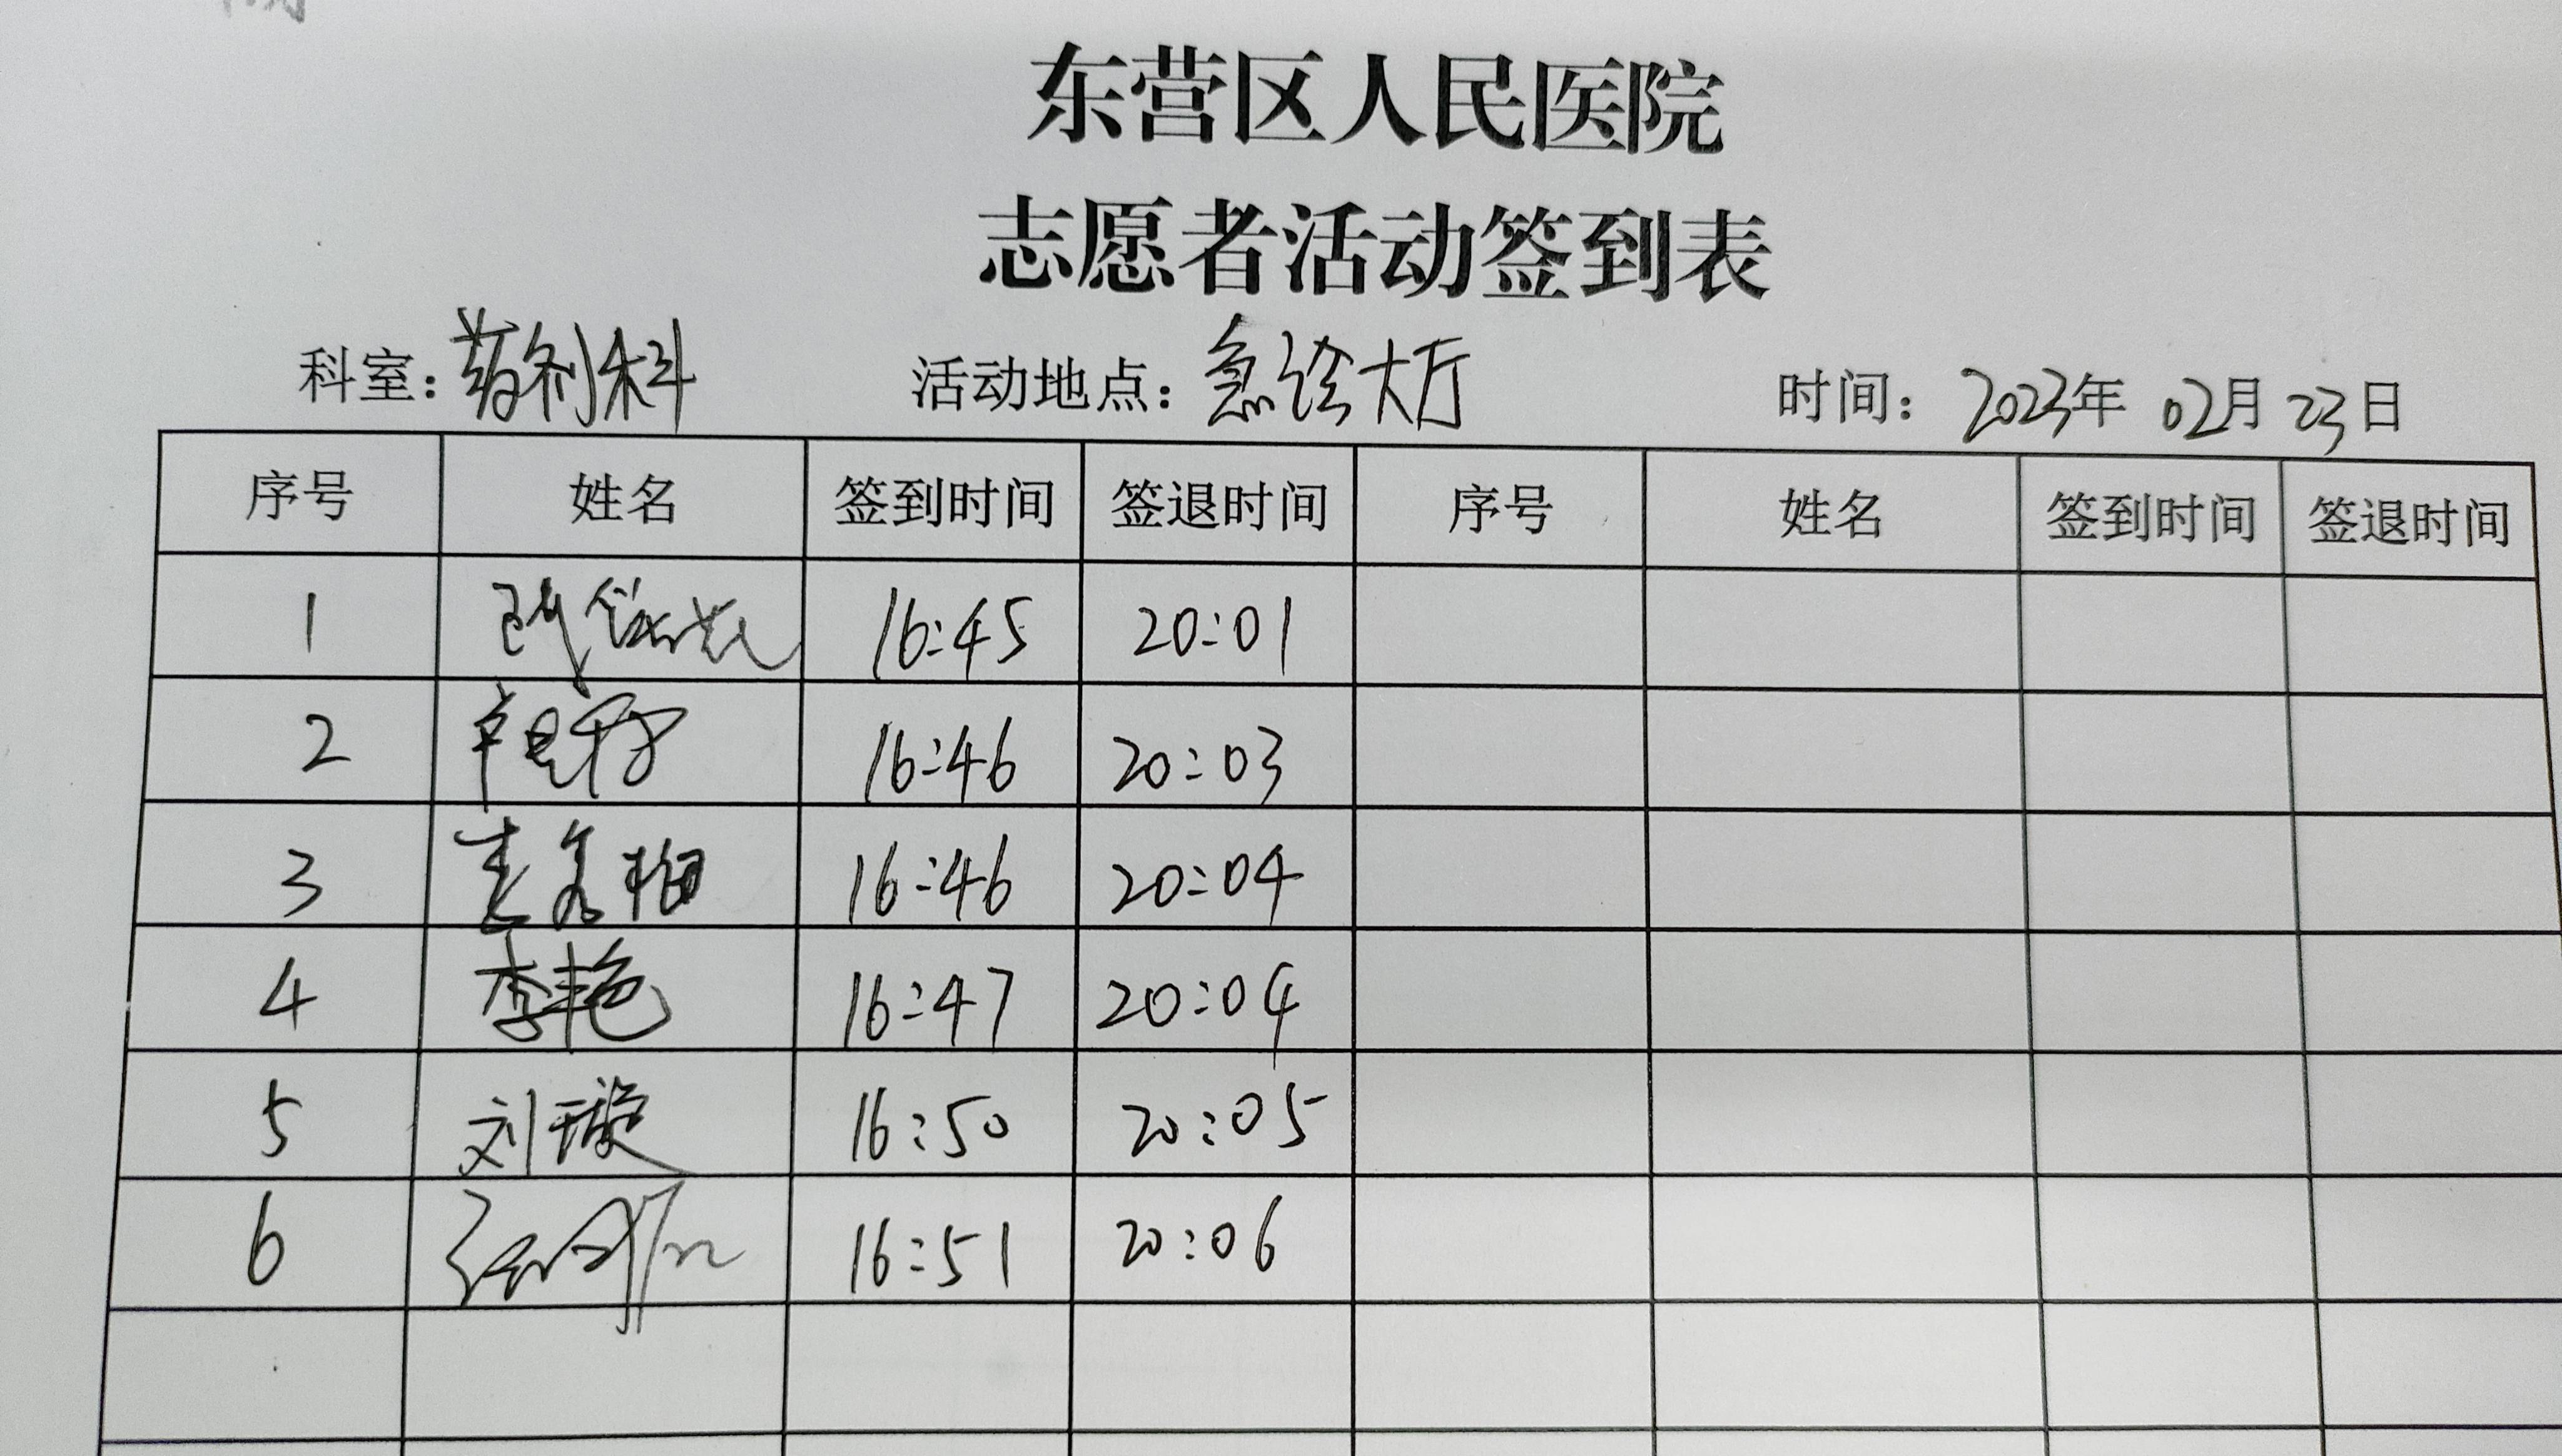 东营区人民医院
志愿者活动签到表
科室：药剂科 活动地点：急诊大厅 时间：2023年 02月 23日
序号 姓名 签到时间 签退时间 序号 姓名 签到时间 签退时间
1 16:45 20:01
2 16:46 20:03
3 16:46 20:04
4 李艳 16:47 20:04
5 刘璇 16:50 20:05
6 16:51 20:06